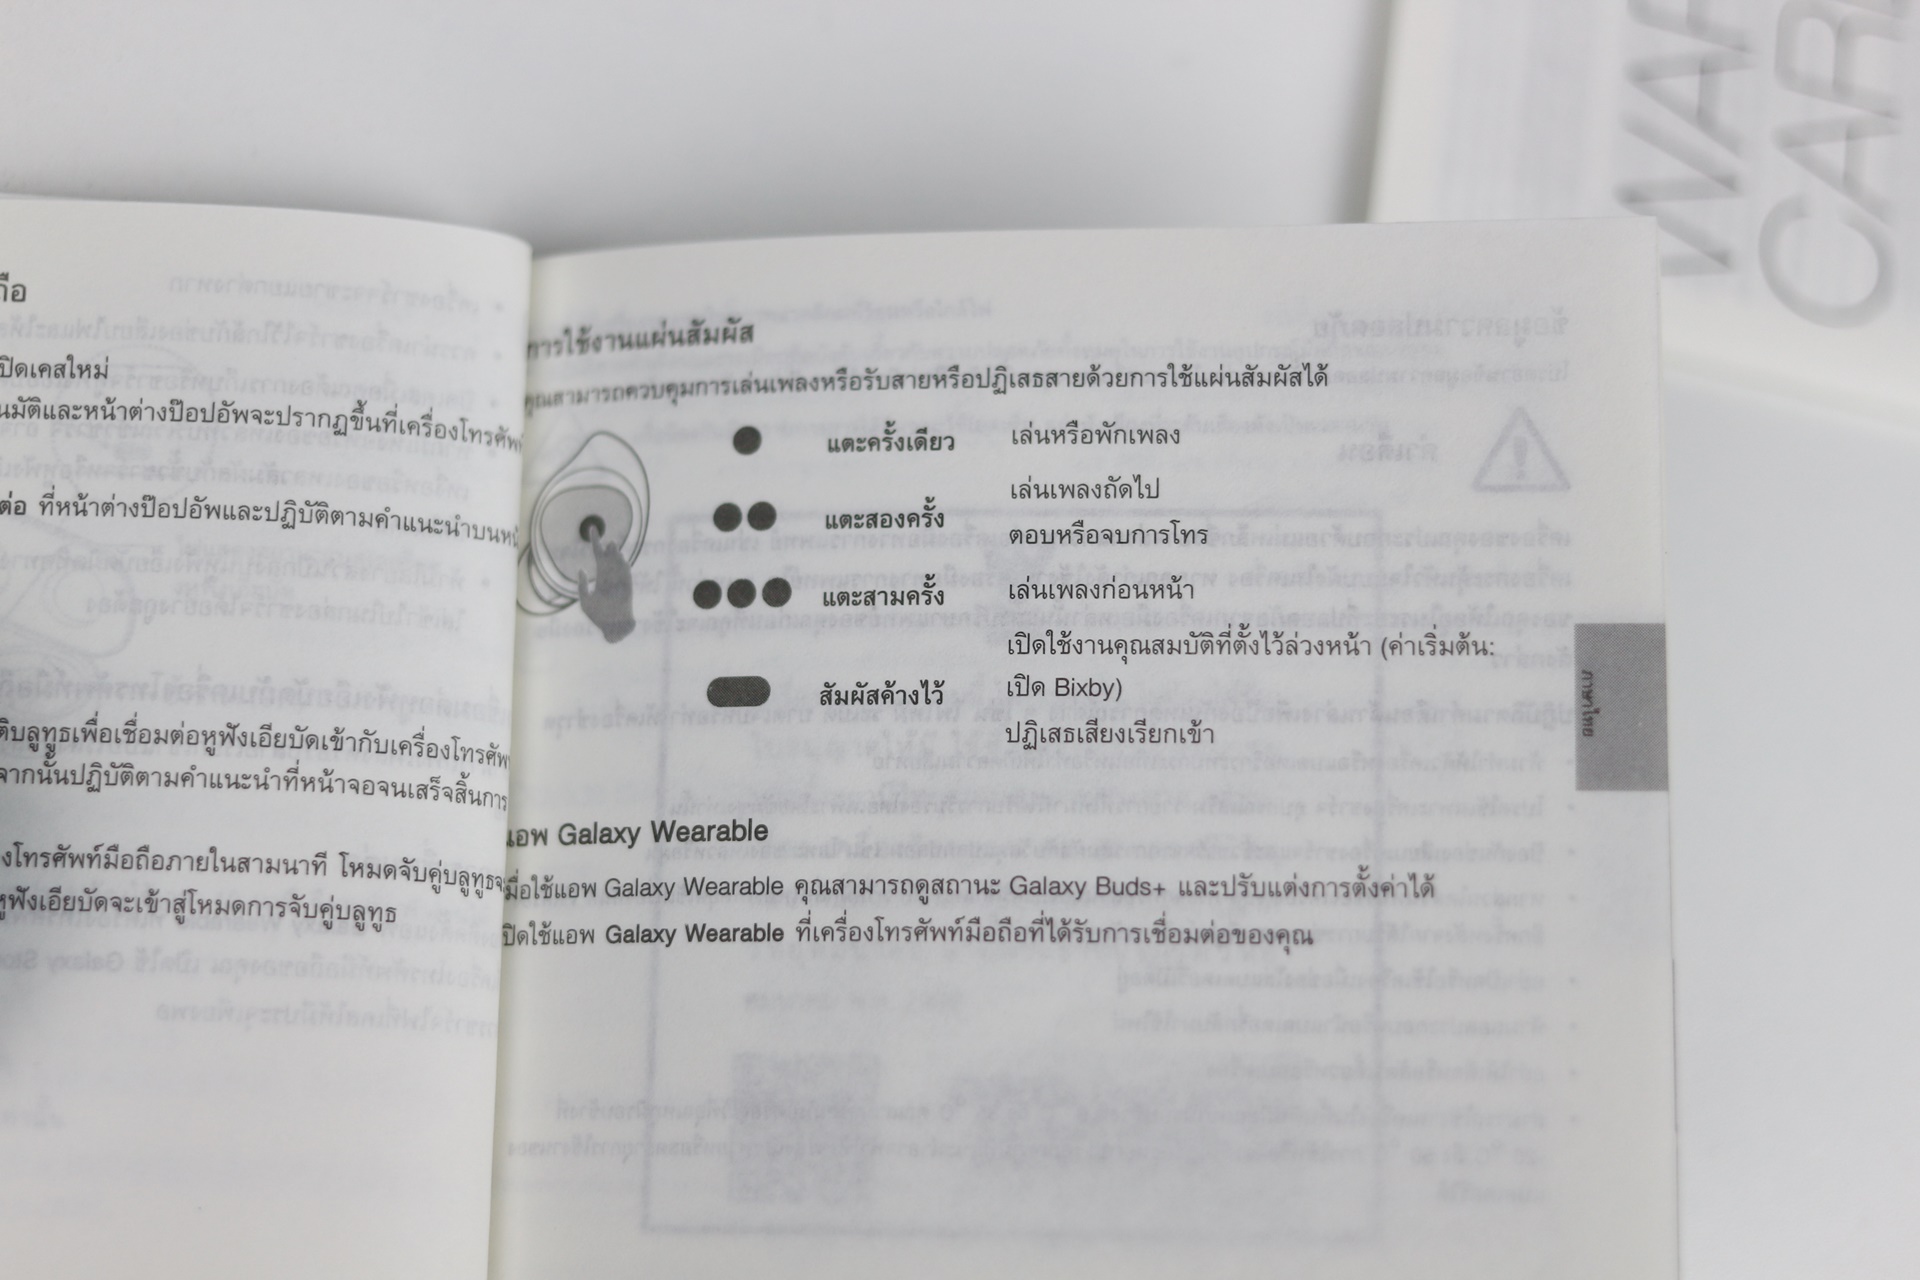 ปิดเคสใหม่
นมัติและหน้าต่างป๊อปอัพจะปรากฏขึ้นที่เครื่องโทรศัพ
ต่อ ที่หน้าต่างป๊อปอัพและปฏิบัติตามคำแนะนำบนหน้
ติบลูทูธเพื่อเชื่อมต่อหูฟังเอียบัดเข้ากับเครื่องโทรศัพ
จากนั้นปฏิบัติตามคำแนะนำที่หน้าจอจนเสร็จสิ้นการ
งโทรศัพท์มือถือภายในสามนาที โหมดจับคู่บลูทูธจ
หูฟังเอียบัดจะเข้าสู่โหมดการจับคู่บลูทูธ
การใช้งานแผ่นสัมผัส
คุณสามารถควบคุมการเล่นเพลงหรือรับสายหรือปฏิเสธสายด้วยการใช้แผ่นสัมผัสได้
แตะครั้งเดียว เล่นหรือพักเพลง
เล่นเพลงถัดไป
แตะสองครั้ง
ตอบหรือจบการโทร
แตะสามครั้ง เล่นเพลงก่อนหน้า
เปิดใช้งานคุณสมบัติที่ตั้งไว้ล่วงหน้า (ค่าเริ่มต้น:
สัมผัสค้างไว้ เปิด Bixby)
ปฏิเสธเสียงเรียกเข้า
ภาษาไทย
แอพ Galaxy Wearable
มื่อใช้แอพ Galaxy Wearable คุณสามารถดูสถานะ Galaxy Buds+ และปรับแต่งการตั้งค่าได้
ปิดใช้แอพ Galaxy Wearable ที่เครื่องโทรศัพท์มือถือที่ได้รับการเชื่อมต่อของคุณ
WAR
CAR